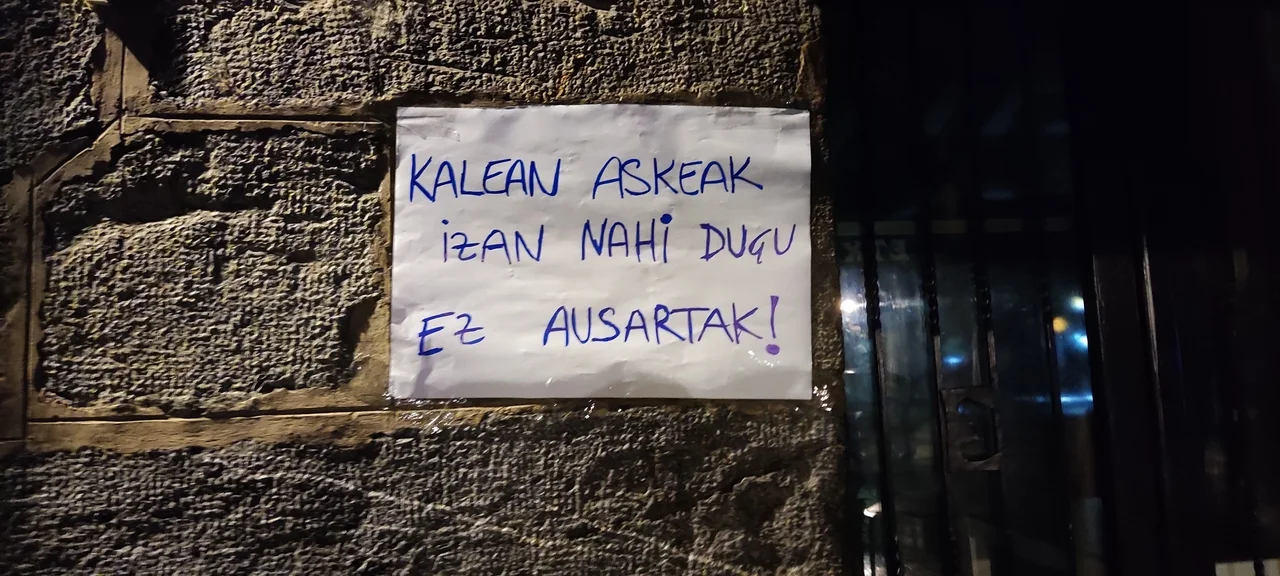 KALEAN ASKEAK
iZAN NAHi DUGU
EZ AUSARTAK!